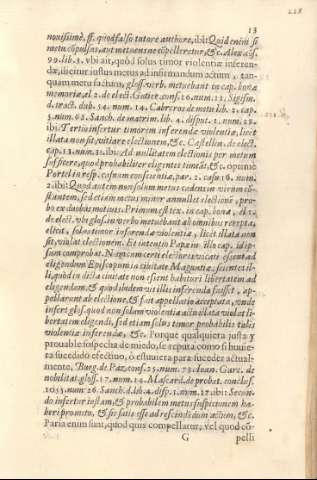 13
nouissimè. ff. quod falso tutore authore, ibi: Quid enim si
metu cõpulsus, aut metu enim ne cõpelleretur, &c. Alex. cõs.
99. lib. 3. vbi ait, quòd solus timor violentiæ inferen-
dæ, dicitur iustus metus ad infirmandum actum, tan-
quam metu factum, gloss. verb. metuebant in cap. bonæ
memoriæ, el 2. de elect. Gutier. cons. 16. num. 12. Sigisin.
d. tract. dub. 54. num. 14. Cabreros de metu lib. 2. cap.
5. num. 62. Sanch. de matrim. lib. 4. disput. 1. num. 22.
ibi: Tertiò infertur timorem inferendæ violentiæ, licet
illata non sit, vitiare electionem, &c. Castellin. de elect.
cap. 13. num. 21. ibi: Ad nullitatem electionis per metum
sufficere, quod probabiliter eligentes timeãt, &c. optimè
Portel in resp. casuum conscientiæ, par. 2. casu 16. num.
2. ibi: Quod autem non solum metus cadens in virum cõ-
stantem, sed etiam metus minor annullet electionẽ, pro-
bo ex duobus motiuis. Primum est tex. in cap. bonæ, el 2.
de elect. vbi glos. in verbo metuebant ab omnibus recepta,
elicit, solo timor inferenda violentia, licet illata non
sit, violat electionem. Et intentio Papæ in illo cap. id ip-
sum comprobat. Nam cum certi electores vocati essent ad
eligendum Episcopum in ciuitate Maguntiæ, scientes il-
li, quòd in dicta ciuitate non essent habituri libertatem ad
eligendum, & quòd ibidem vis illis inferenda fuisset, ap-
pellarunt ab electione, & fuit appellatio acceptata, vnde
infert glos. quod non solum violentia actu illata violat li-
bertatem eligendi, sed etiam solus timor probabilis talis
violentiæ inferendæ, &c. Porque qualquiera justa y
prouable sospecha de miedo, se reputa como si huuie-
ra sucedido efectiuo, ò estuuiera para suceder actual-
mento, Burg. de Paz, cons. 25. num. 73. Ioan. Garc. de
nobilitat. gloss. 17. num. 14. Mascard. de probat. conclus.
1053. num. 26. Sanch. d. lib. 4. disp. 1. num. 17. ibi: Secun-
do infertur iustam, & probabilem metus suspicionem ha-
beri pro metu, & sic satis esse ad rescindendum actum, &c.
Paria enim sunt, quod quis compellatur, vel quod cõ-
G
pelli